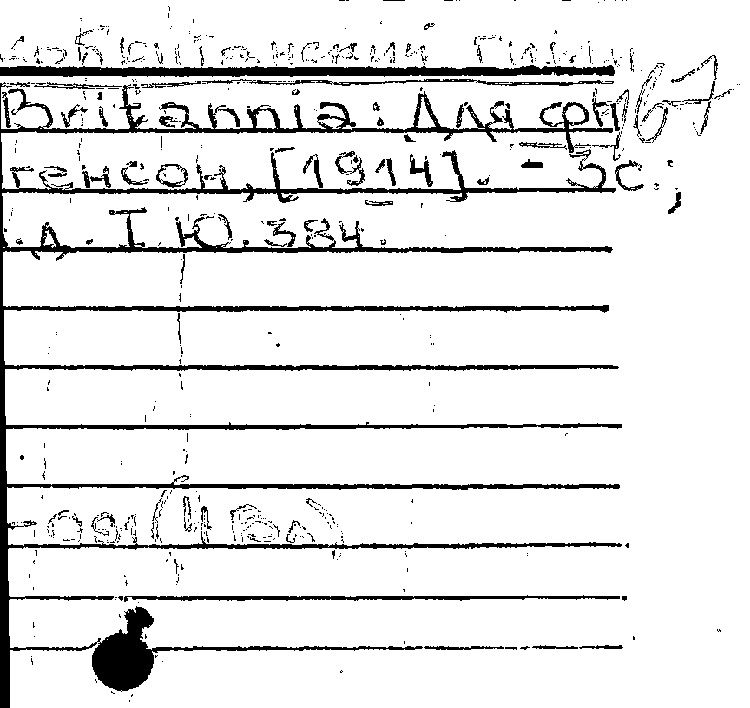 кобританский гимн
Britannia: Для фп
генсон, [1914]. - 3с.;
.д. I Ю.384.
-091(4 Вл)